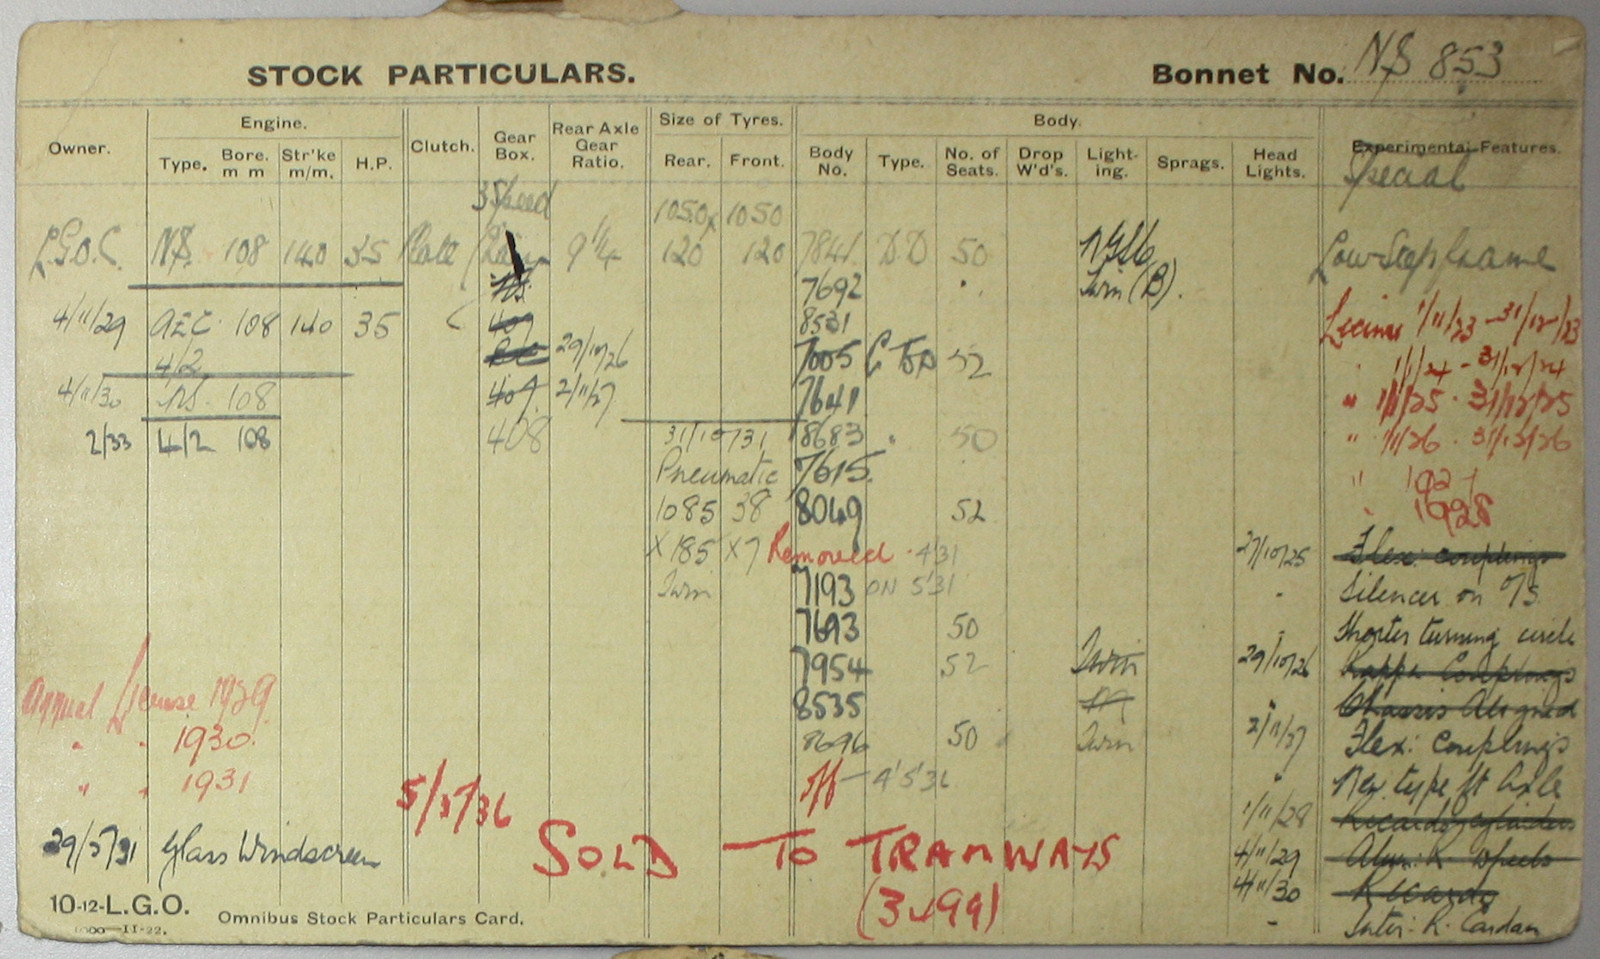 STOCK PARTICULARS. Bonnet No. NS 853
Owner. Engine. Clutch. Gear Box. Rear Axle Gear Ratio. Size of Tyres. Body. Experimental Features.
Type. Bore. m m Str'ke m/m. H.P. Rear. Front. Body No. Type. No. of Seats. Drop W'd's. Light-ing. Sprags. Head Lights. Special
3 Speed 1050 x 1050
L.G.O.C. NS. 108 140 35 Plate 9 1/4 120 120 7841 D.D 50 Low Step frame
7692 Twin (B).
4/11/29 AEC 108 140 35 409 8531 License 1/11/23 - 31/12/23
4/2 29/10/26 7005 52 " 1/1/24 - 31/12/24
4/11/30 NS. 108 409 2/11/27 7641 " 1/1/25 - 31/12/25
2/33 4/2 108 408 31/10/31 8683 " 50 " 1/1/26 - 31/12/26
Pneumatic 7615 " 1927
1085 38 8049 52 " 1928
X 185 X 7 Removed 4'31 27/10/25 Flex: couplings
Twin 7193 ON 5'31 - Silencer on O/S.
7693 50 Shorter turning circle
7954 52 Twin 29/10/26 Couplings
Annual License 1929 8535 " Chassis Aligned
" " 1930. 8696 50 Twin 2/11/27 Flex: Couplings
" " 1931 off 4'5'36 " New type ft Axle
5/5/36 1/11/28 Ricardo cylinders
29/5/31 Glass Windscreen SOLD TO TRAMWAYS 4/11/29 wheels
(3499) 4/11/30 Ricardo
10-12-L.G.O. Omnibus Stock Particulars Card. - Inter: R. Cardan
1000—11-22.